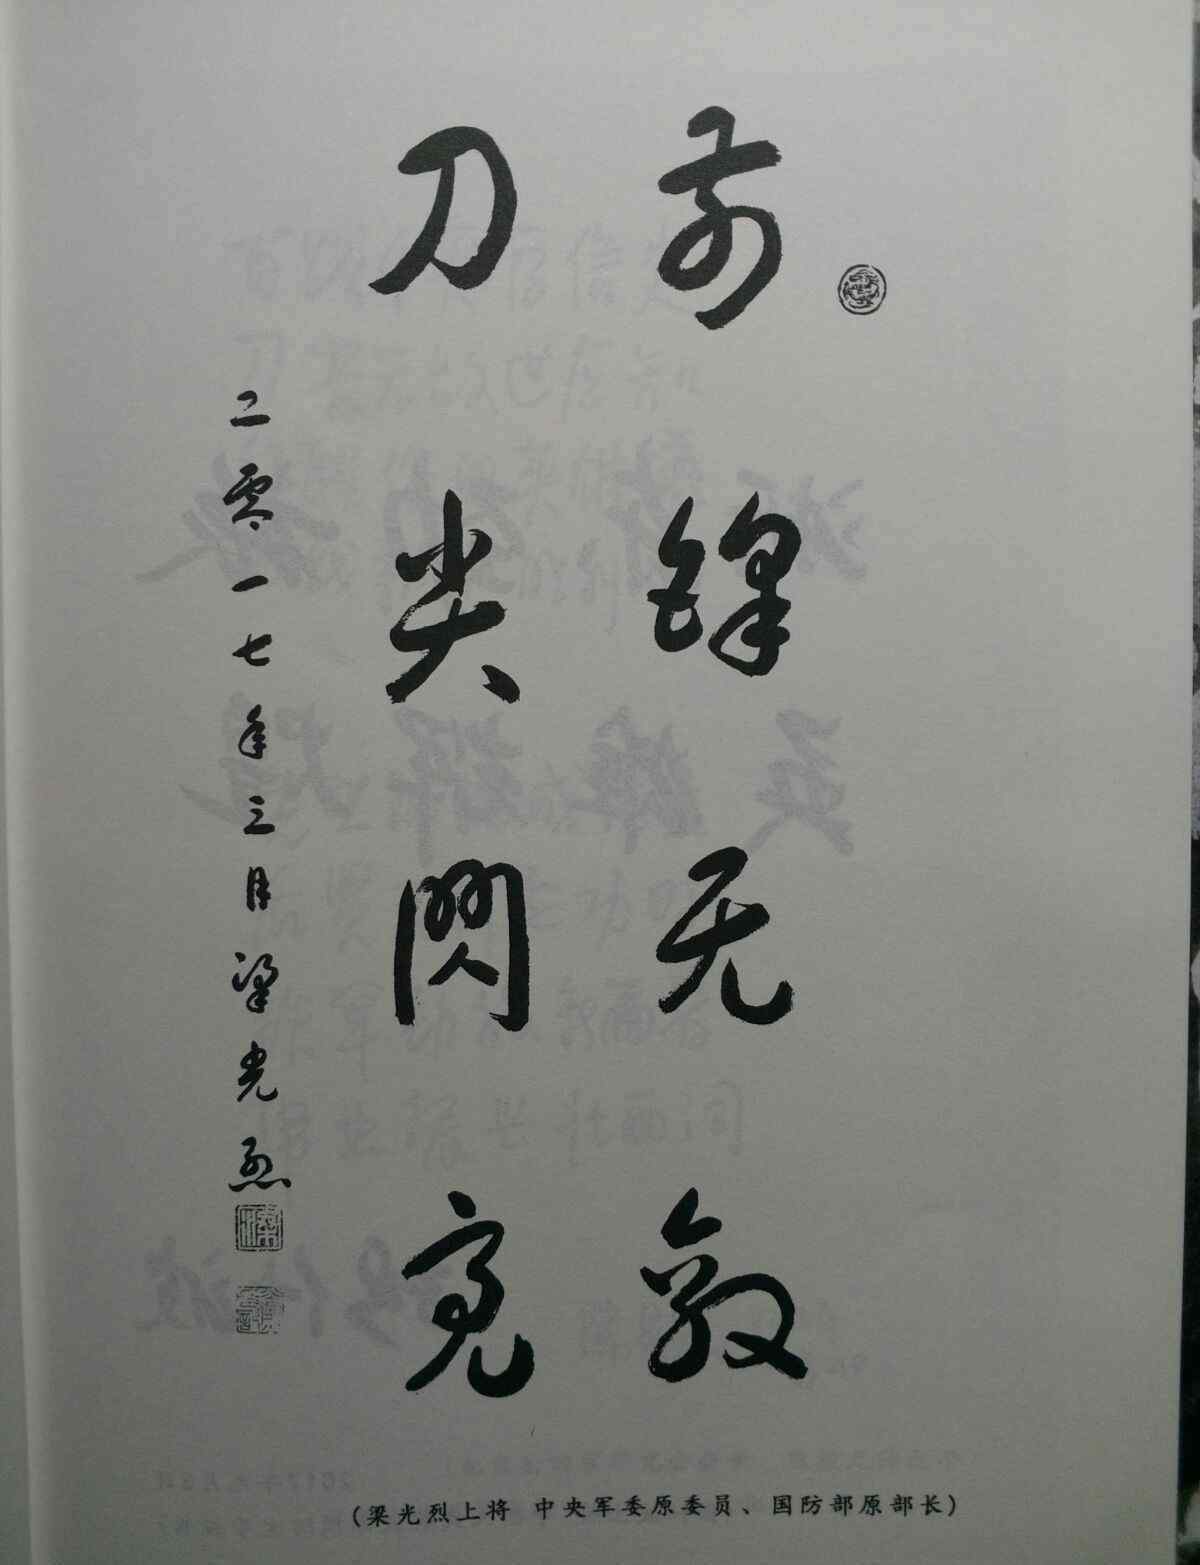 前锋无敌
刀尖閃亮
二零一七年三月梁光烈
(梁光烈上将 中央军委原委员、国防部原部长)